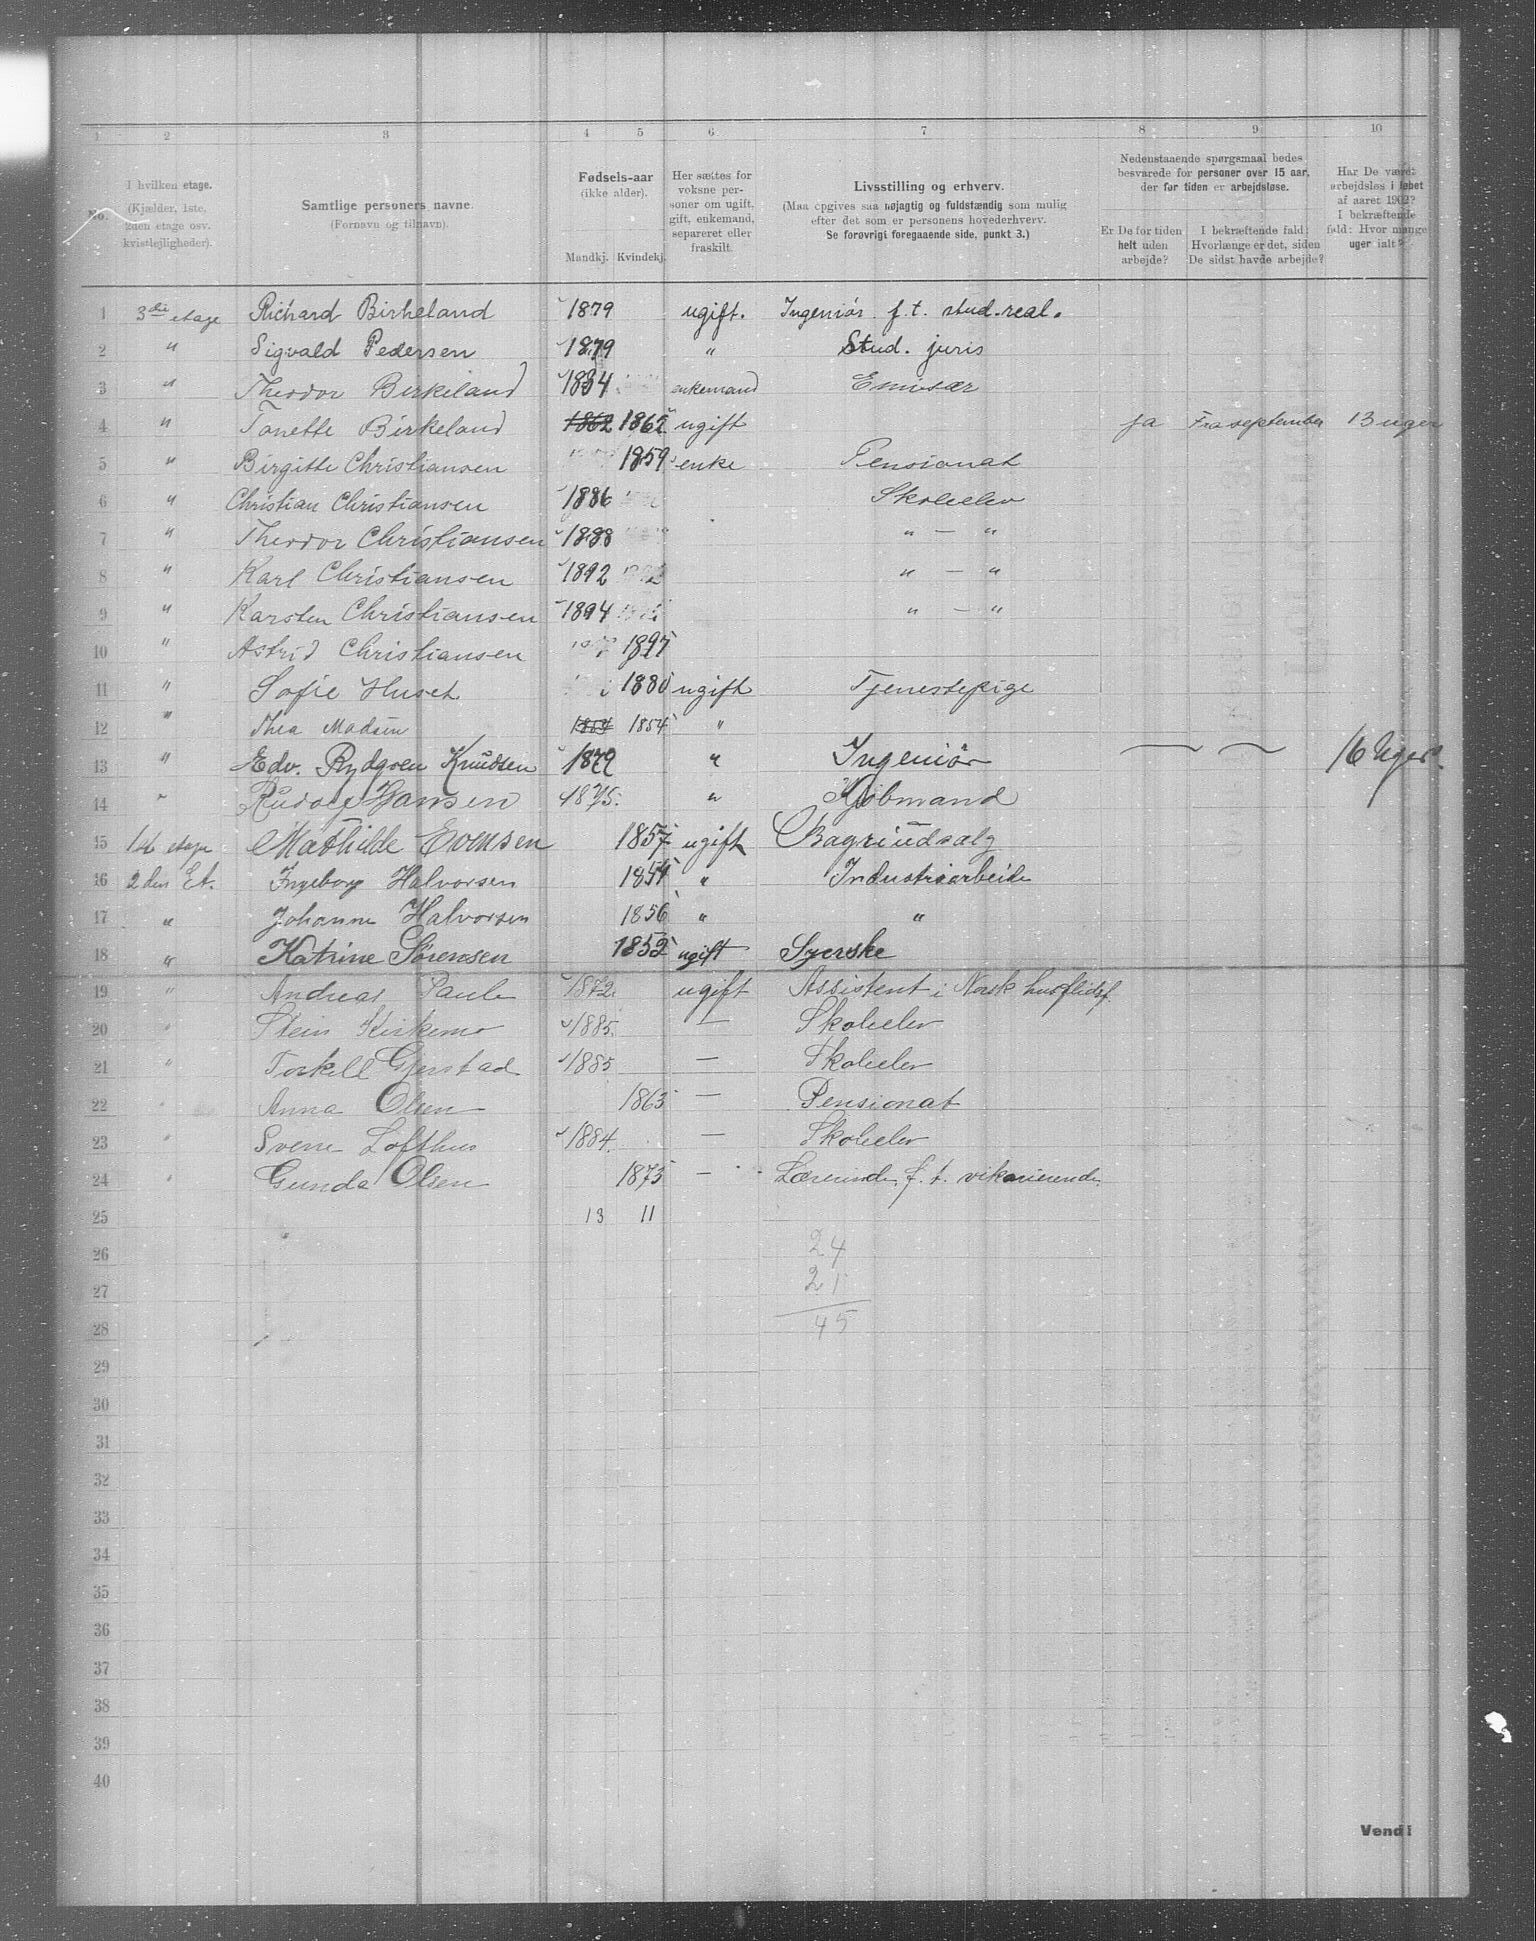 1 2 3 4 5 6 7 8 9 10
No.
I hvilken etage.
(Kjælder, 1ste,
2den etage osv.
kvistlejligheder).
Samtlige personers navne.
(Fornavn og tilnavn).
Fødsels-aar
(ikke alder).
Mandkj. Kvindekj.
Her sættes for
voksne per-
soner om ugift,
gift, enkemand,
separeret eller
fraskilt.
Livsstilling og erhverv.
(Maa opgives saa nøjagtig og fuldstændig som mulig
efter det som er personens hovederhverv.
Se forøvrigt foregaaende side, punkt 3.)
Nedenstaaende spørgsmaal bedes
besvarede for personer over 15 aar,
der for tiden er arbejdsløse.
Er De for tiden
helt uden
arbejde?
I bekræftende fald:
Hvorlænge er det, siden
De sidst havde arbejde?
Har De været
arbejdsløs i løbet
af aaret 1902?
I bekræftende
fald: Hvor mange
uger ialt?
1 3die etage Richard Birkeland 1879 ugift. Ingeniør f.t. stud. real.
2 " Sigvald Pedersen 1879 " Stud. juris
3 " Theodor Birkeland 1834 enkemand Emisær
4 " Tonette Birkeland 1862 1862 ugift ja Fra september 13 uger
5 " Birgitte Christiansen 1859 enke Pensionat
6 " Christian Christiansen 1886 Skoleelev
7 " Theodor Christiansen 1888 " — "
8 " Karl Christiansen 1892 " — "
9 " Karsten Christiansen 1894 " — "
10 " Astrid Christiansen 1897
11 " Sofie Huset 1880 ugift Tjenestepige
12 " Thea Madsen 1854 1854 "
13 " Edv. Rydgren Knudsen 1879 " Ingeniør — — 16 Uger.
14 " Rudolf Hansen 1875. " Kjøbmand
15 1st etage Mathilde Evensen 1857 ugift Bageriudsalg
16 2den Et. Ingeborg Halvorsen 1854 " Industriarbeide
17 " Johanne Halvorsen 1856 " "
18 " Katrine Sørensen 1852 ugift Syerske
19 " Andreas Pauls 1872 ugift Assistent i Norsk husflidsf.
20 " Stein Kirkemo 1885. — Skoleelev
21 " Torkell Gjerstad 1885 — Skoleelev
22 " Anna Olsen 1863 — Pensionat
23 " Sverre Lofthus 1884. — Skoleelev
24 " Gunda Olsen 1873 — Lærerinde f. t. vikarierende
25 13 11
26 24
27 21
28 45
29
30
31
32
33
34
35
36
37
38
39
40
Vend!